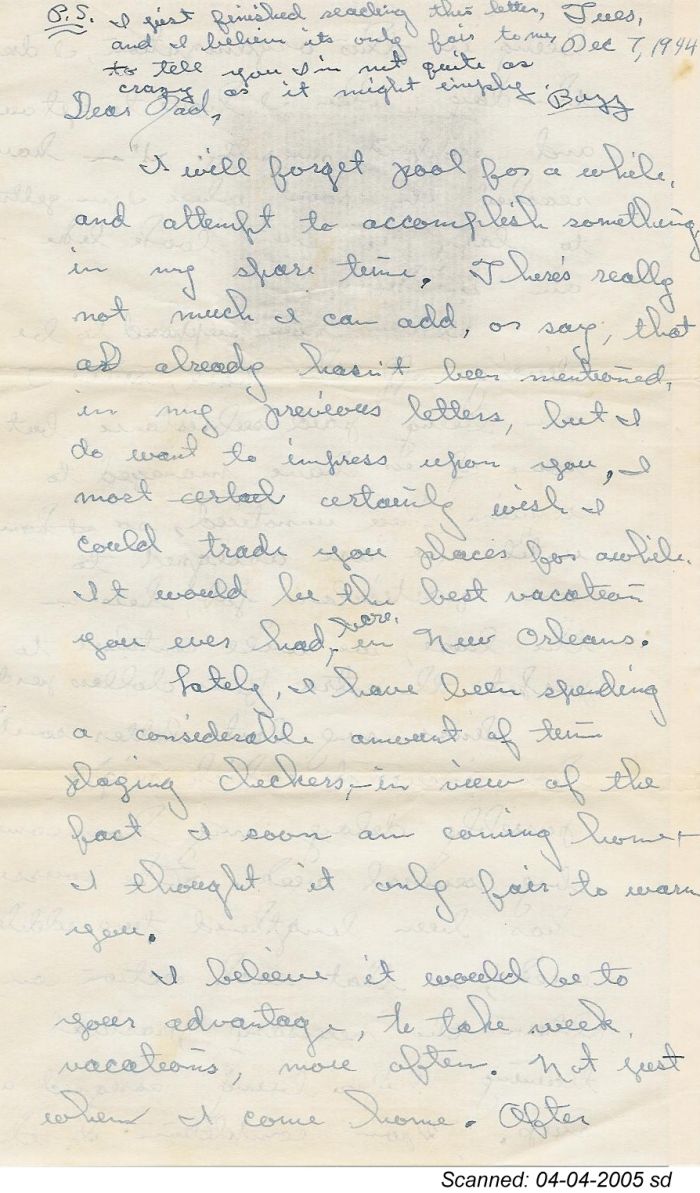 P.S. I just finished reading this letter,
and I believe its only fair to me,
to tell you I'm not quite as
crazy as it might imply.
Buzz
Tues,
Dec 7, 1944
Dear Dad,
I will forget pool for a while,
and attempt to accomplish something,
in my spare time. There's really
not much I can add, or say, that
already hasn't been mentioned,
in my previous letters, but I
do want to impress upon you, I
most certainly wish I
could trade you places for awhile.
It would be the best vacation
you ever had, here, in New Orleans.
Lately, I have been spending
a considerable amount of time
playing checkers, - in view of the
fact I soon am coming home -
I thought it only fair to warn
you.
I believe it would be to
your advantage, to take week
vacations, more often. Not just
when I come home. After
Scanned: 04-04-2005 sd